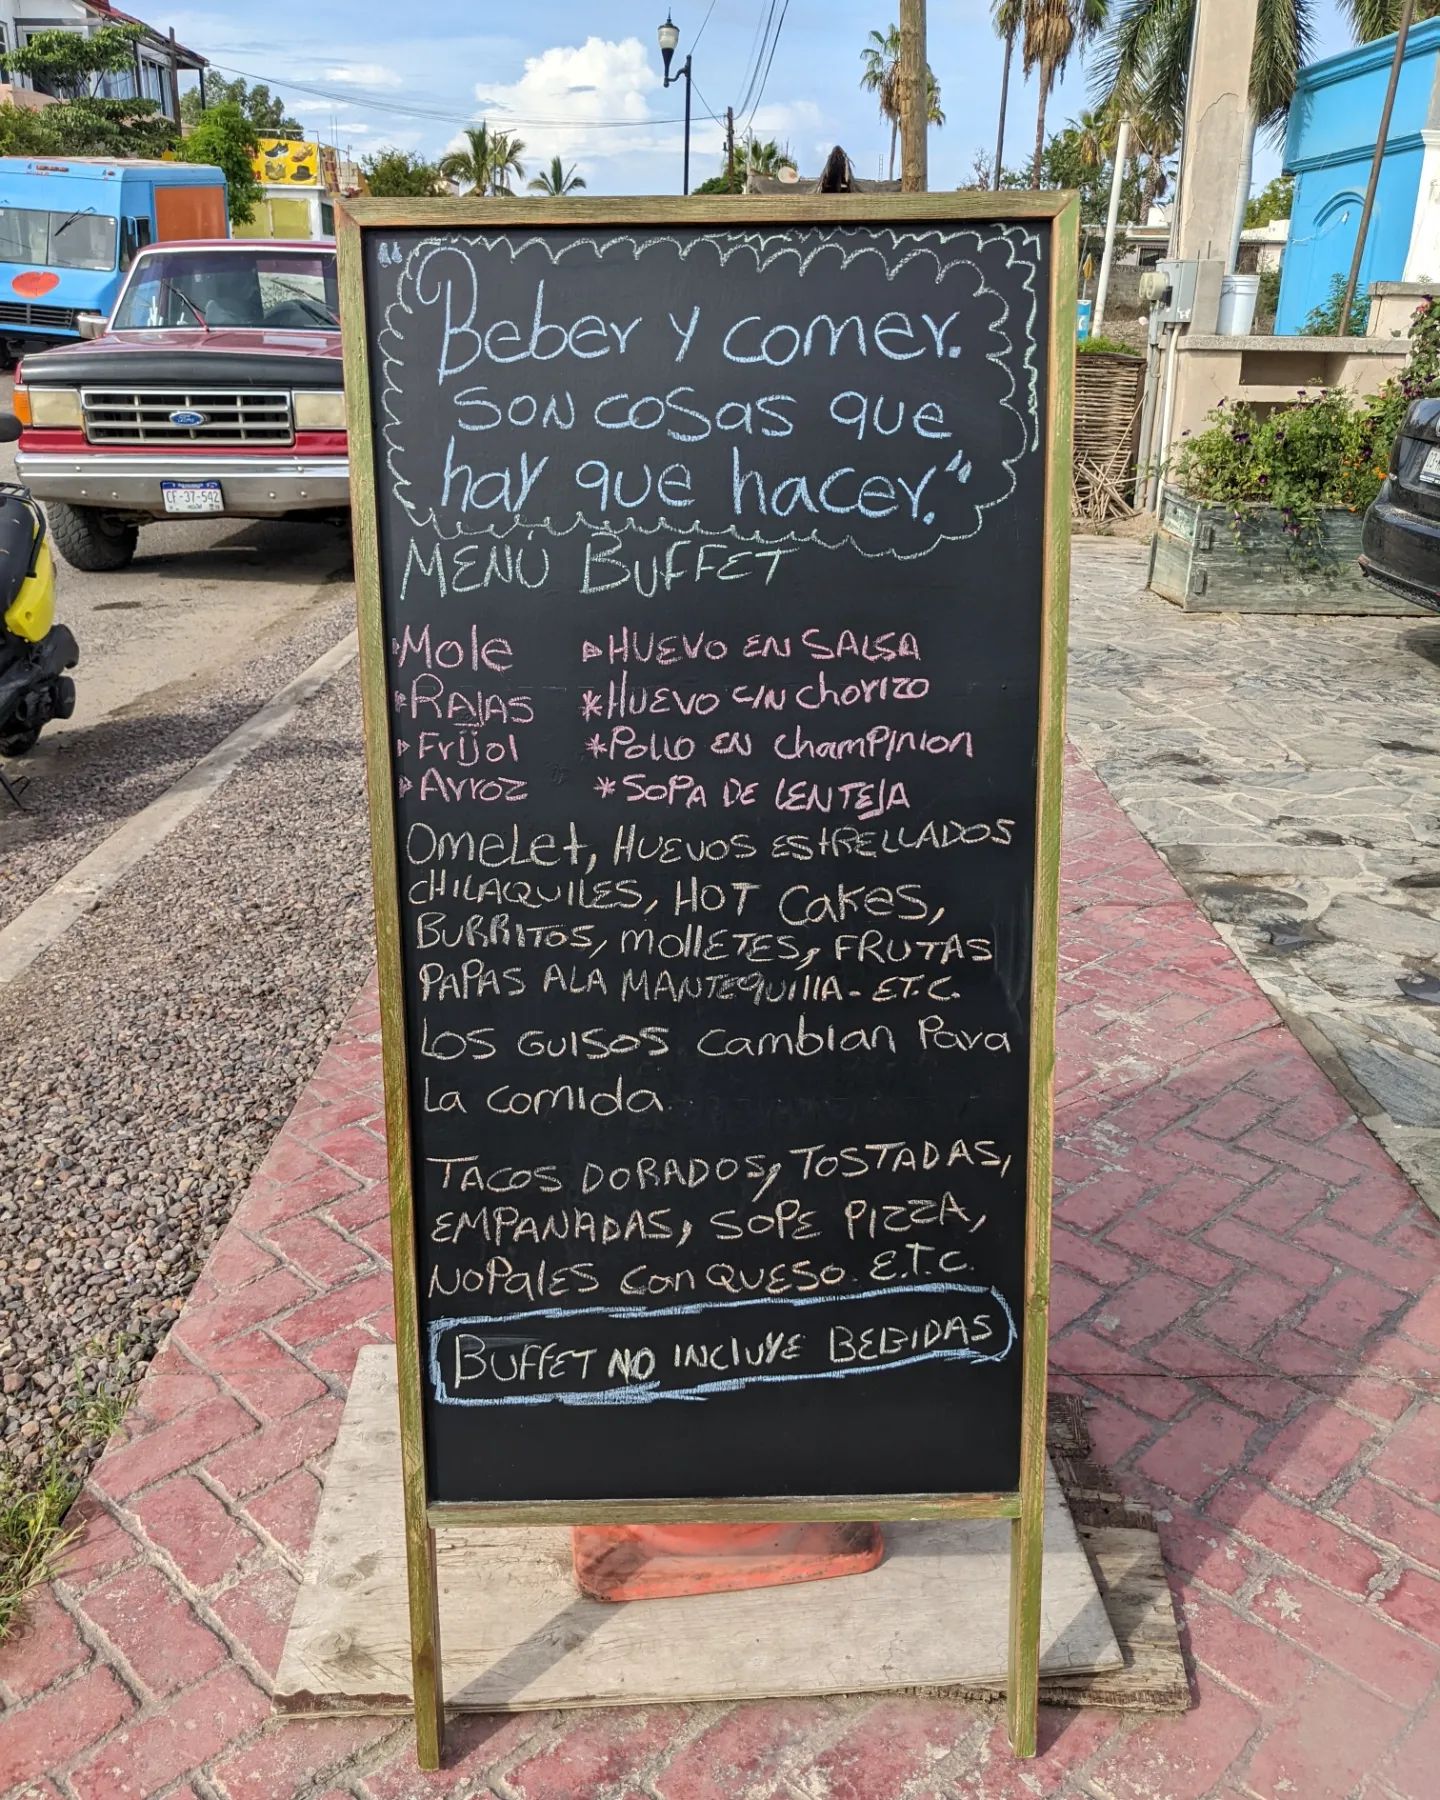 "Beber y comer.
son cosas que
hay que hacer."
MENÚ BUFFET
Mole
RAJAS
Frijol
Arroz
HUEVO EN SALSA
*HUEVO C/N chorizo
*Pollo EN champinion
*SOPA DE LENTEJA
Omelet, HUEVOS ESTRELLADOS
CHILAQUILES, HOT CaKes,
BURRITOS, MOllETES, FRUTAS
PAPAS ALA MANTEQUIllA- ET.C.
LOS GUISOS cambian Para
La comida
TACOS DORADOS, TOSTADAS,
EMPANADAS, SOPE PIZZA,
NOPALES con QUESO. E.T.C.
BUFFET NO INCLUYE BEBIDAS
Ford
CF-37-542